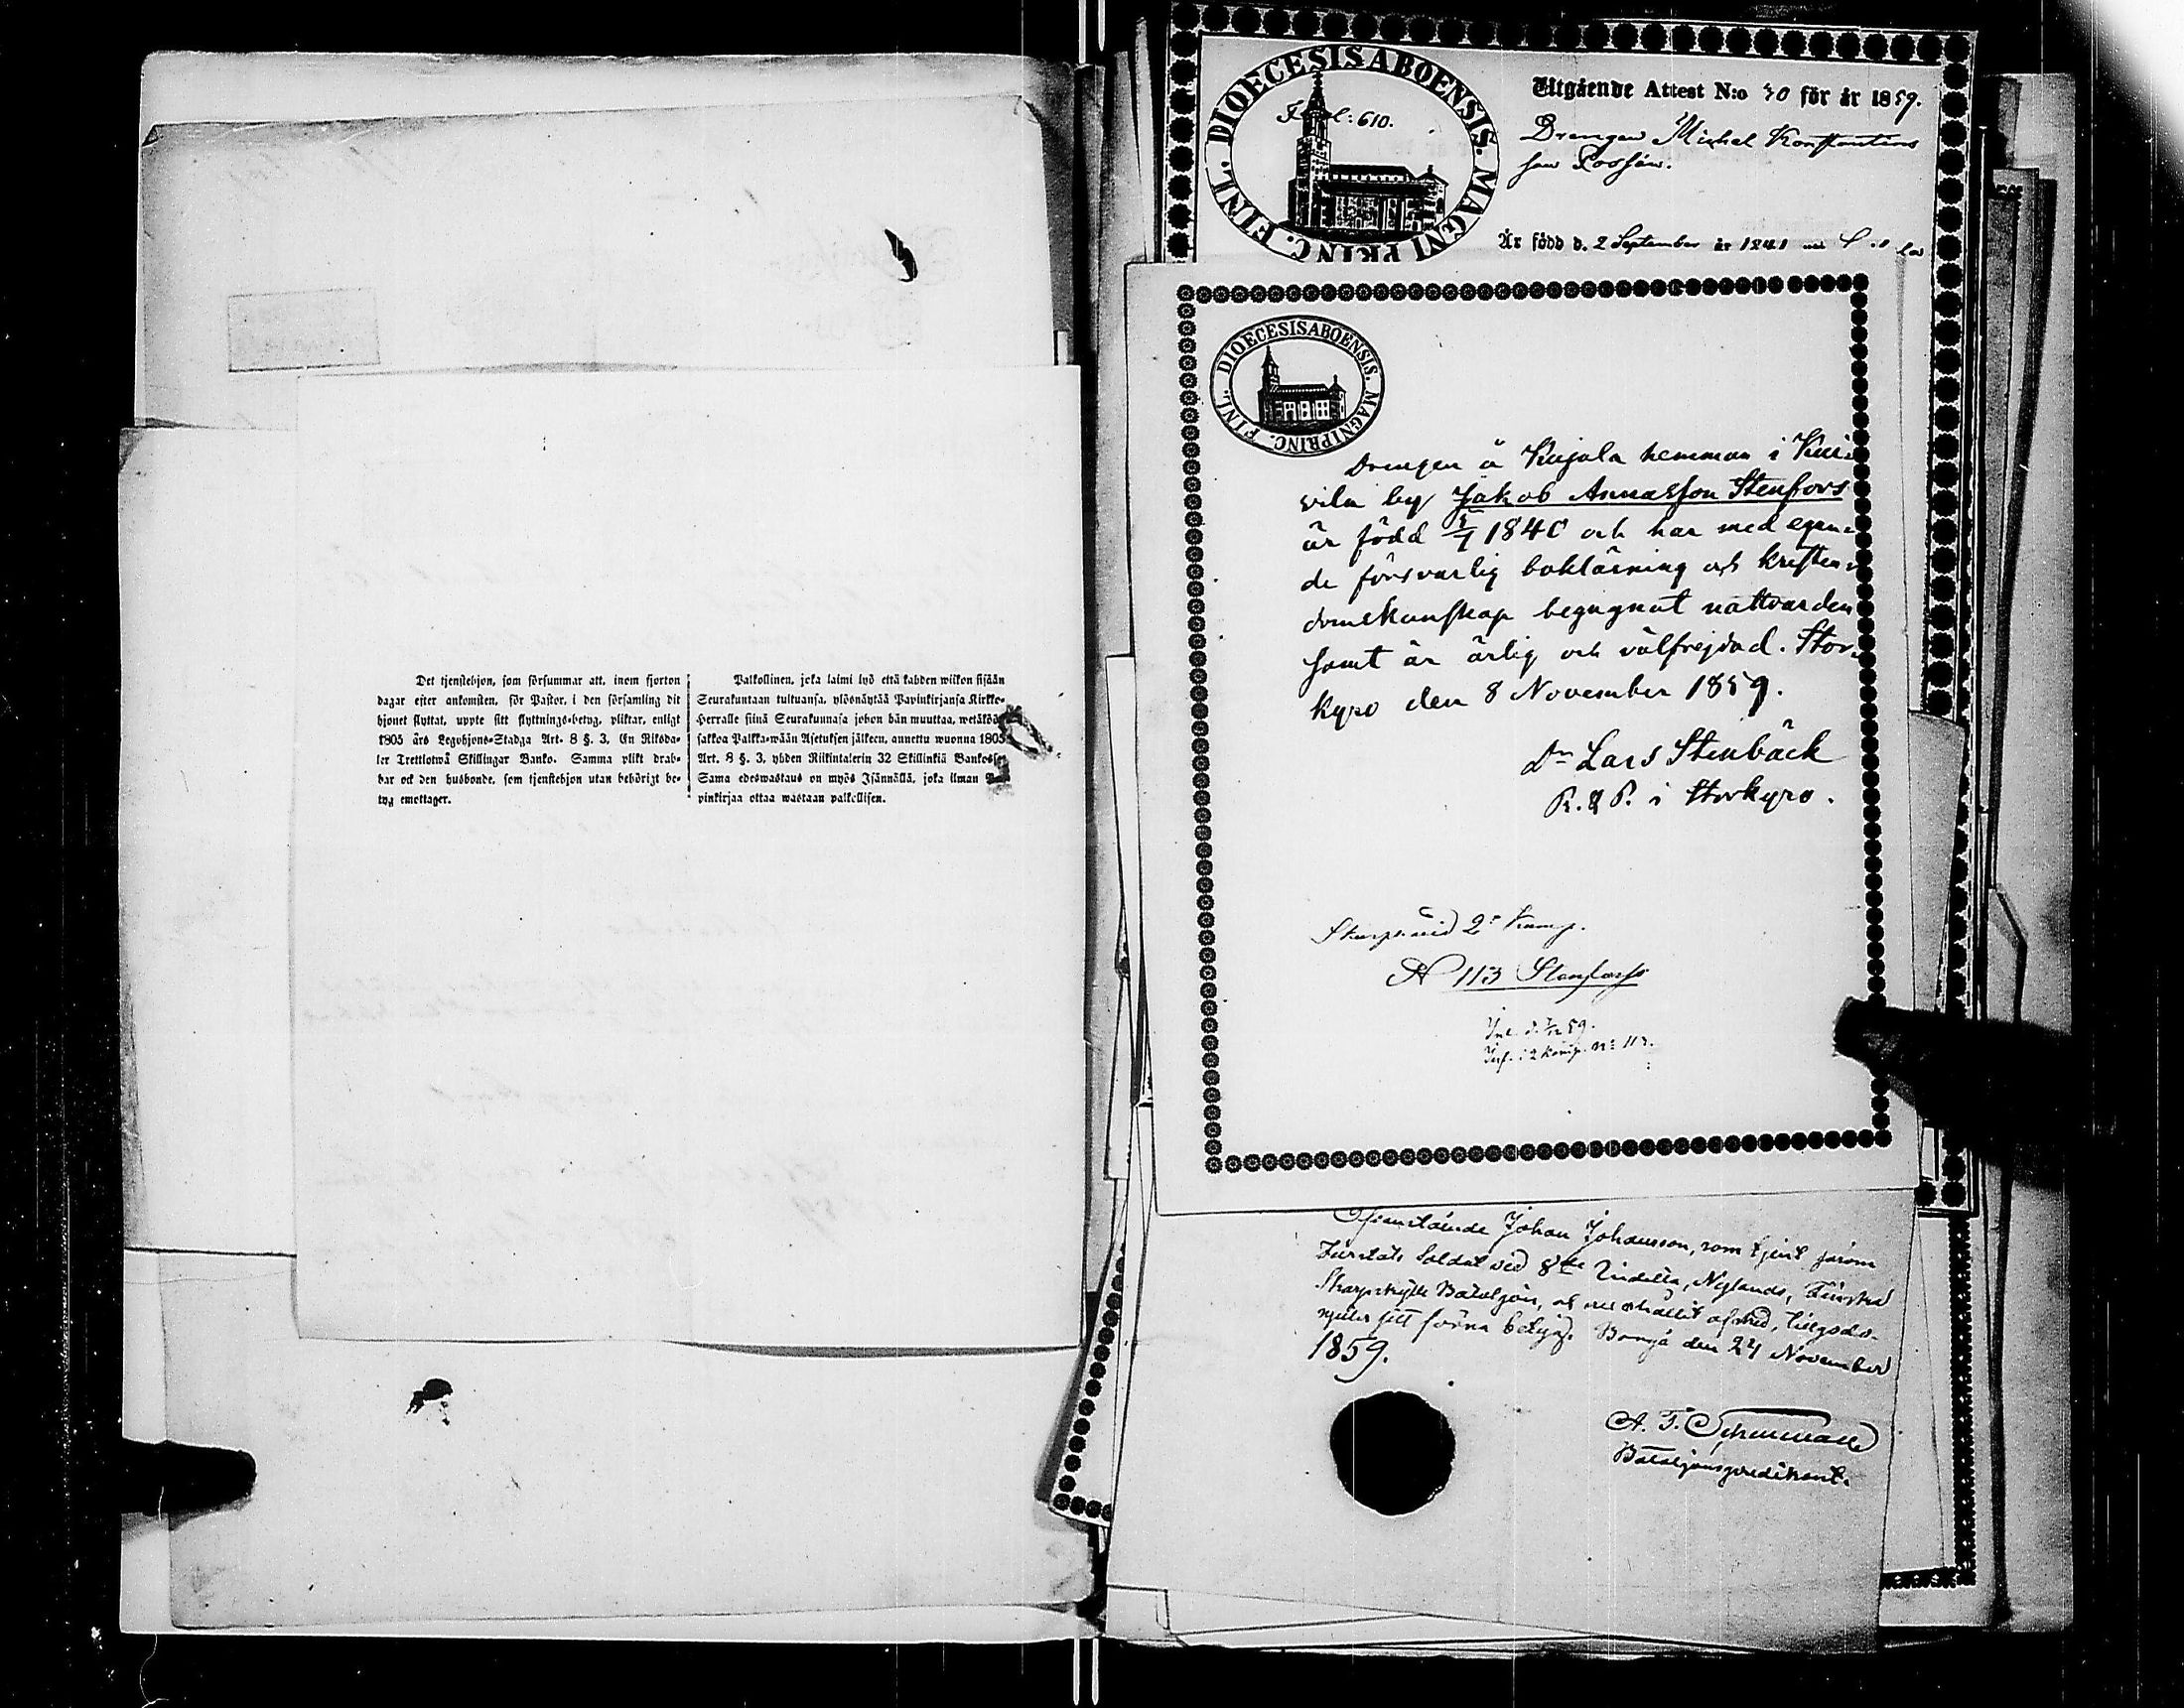 Det tjenstehjon, som försummar att, inom fjorton
dagar efter ankomsten, för Pastor, i den församling dit
hjonet flyttat, uppte sitt flyttnings-betyg, pliktar, enligt
1805 års Legohjons-Stadga Art. 8 §. 3, En Riksda-
ler Trettiotwå Skillingar Banko. Samma plikt drab-
bar ock den husbonde, som tjenstehjon utan behörigt be-
tyg emottager.
Palkollinen, joka laimi lyö että kahden wiikon sisään
Seurakuntaan tultuansa, ylösnäytää Papinkirjansa Kirkko-
Herralle siinä Seurakunnasa johon hän muuttaa, wetäköön
sakkoa Palkka-wään Asetuksen jälkeen, annettu wuonna 1805
Art. 8 §. 3, yhden Riikintalerin 32 Skillinkiä Bankossa.
Sama edeswastaus on myös Isännällä, joka ilman Pa-
pinkirjaa ottaa wastaan palkollisen.
DIOECESIS ABOENSIS. MAGNI PRINC. FINL.
Fol: 610.
Utgående Attest N:o 30 för år 1859.
Drengen Michel Konstantins
son
Är född d. 2 September år 1841
DIOECESIS ABOENSIS. MAGNI PRINC. FINL.
Drengen å Kujala hemman i
vila by Jakob Annasson Stenfors
är född 5/7 1840 och har med egan-
de försvarlig bokläsning och kristen-
domskunskap begagnat nattvarden
samt är ärlig och välfrejdad. Stor-
kyro den 8 November 1859.
Dr Lars Stenbäck
P. & P. i Storkyro.
2a Komp.
N 113 Stenfors
Inl. d. 7/12 59.
Inf. i 2 komp. No 113.
Ofvanstående Johan Johansson, som tjent såsom
Soldat vid 8de Indelta, Nylands, Finska
Skarpskytte Bataljon, och nu erhållit afsked,
njuter sitt förra betyg. Borgå den 24 November
1859.
A. F.
Bataljonspredikant.